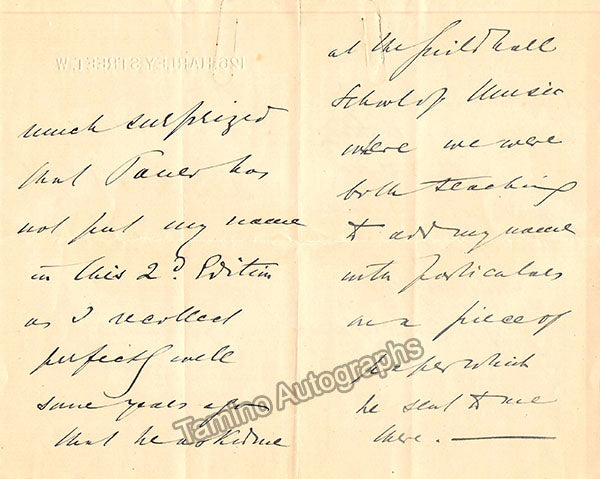 much surprized
that Pauer has
not put my name
in this 2d. Edition
as I recollect
perfectly well
some years ago
that he asked me
at the Guildhall
School of Music
where we were
both teaching
to add my name
with particulars
on a piece of
paper which
he sent to me
there. —
Tamino Autographs
126 HARLEY STREET. W.